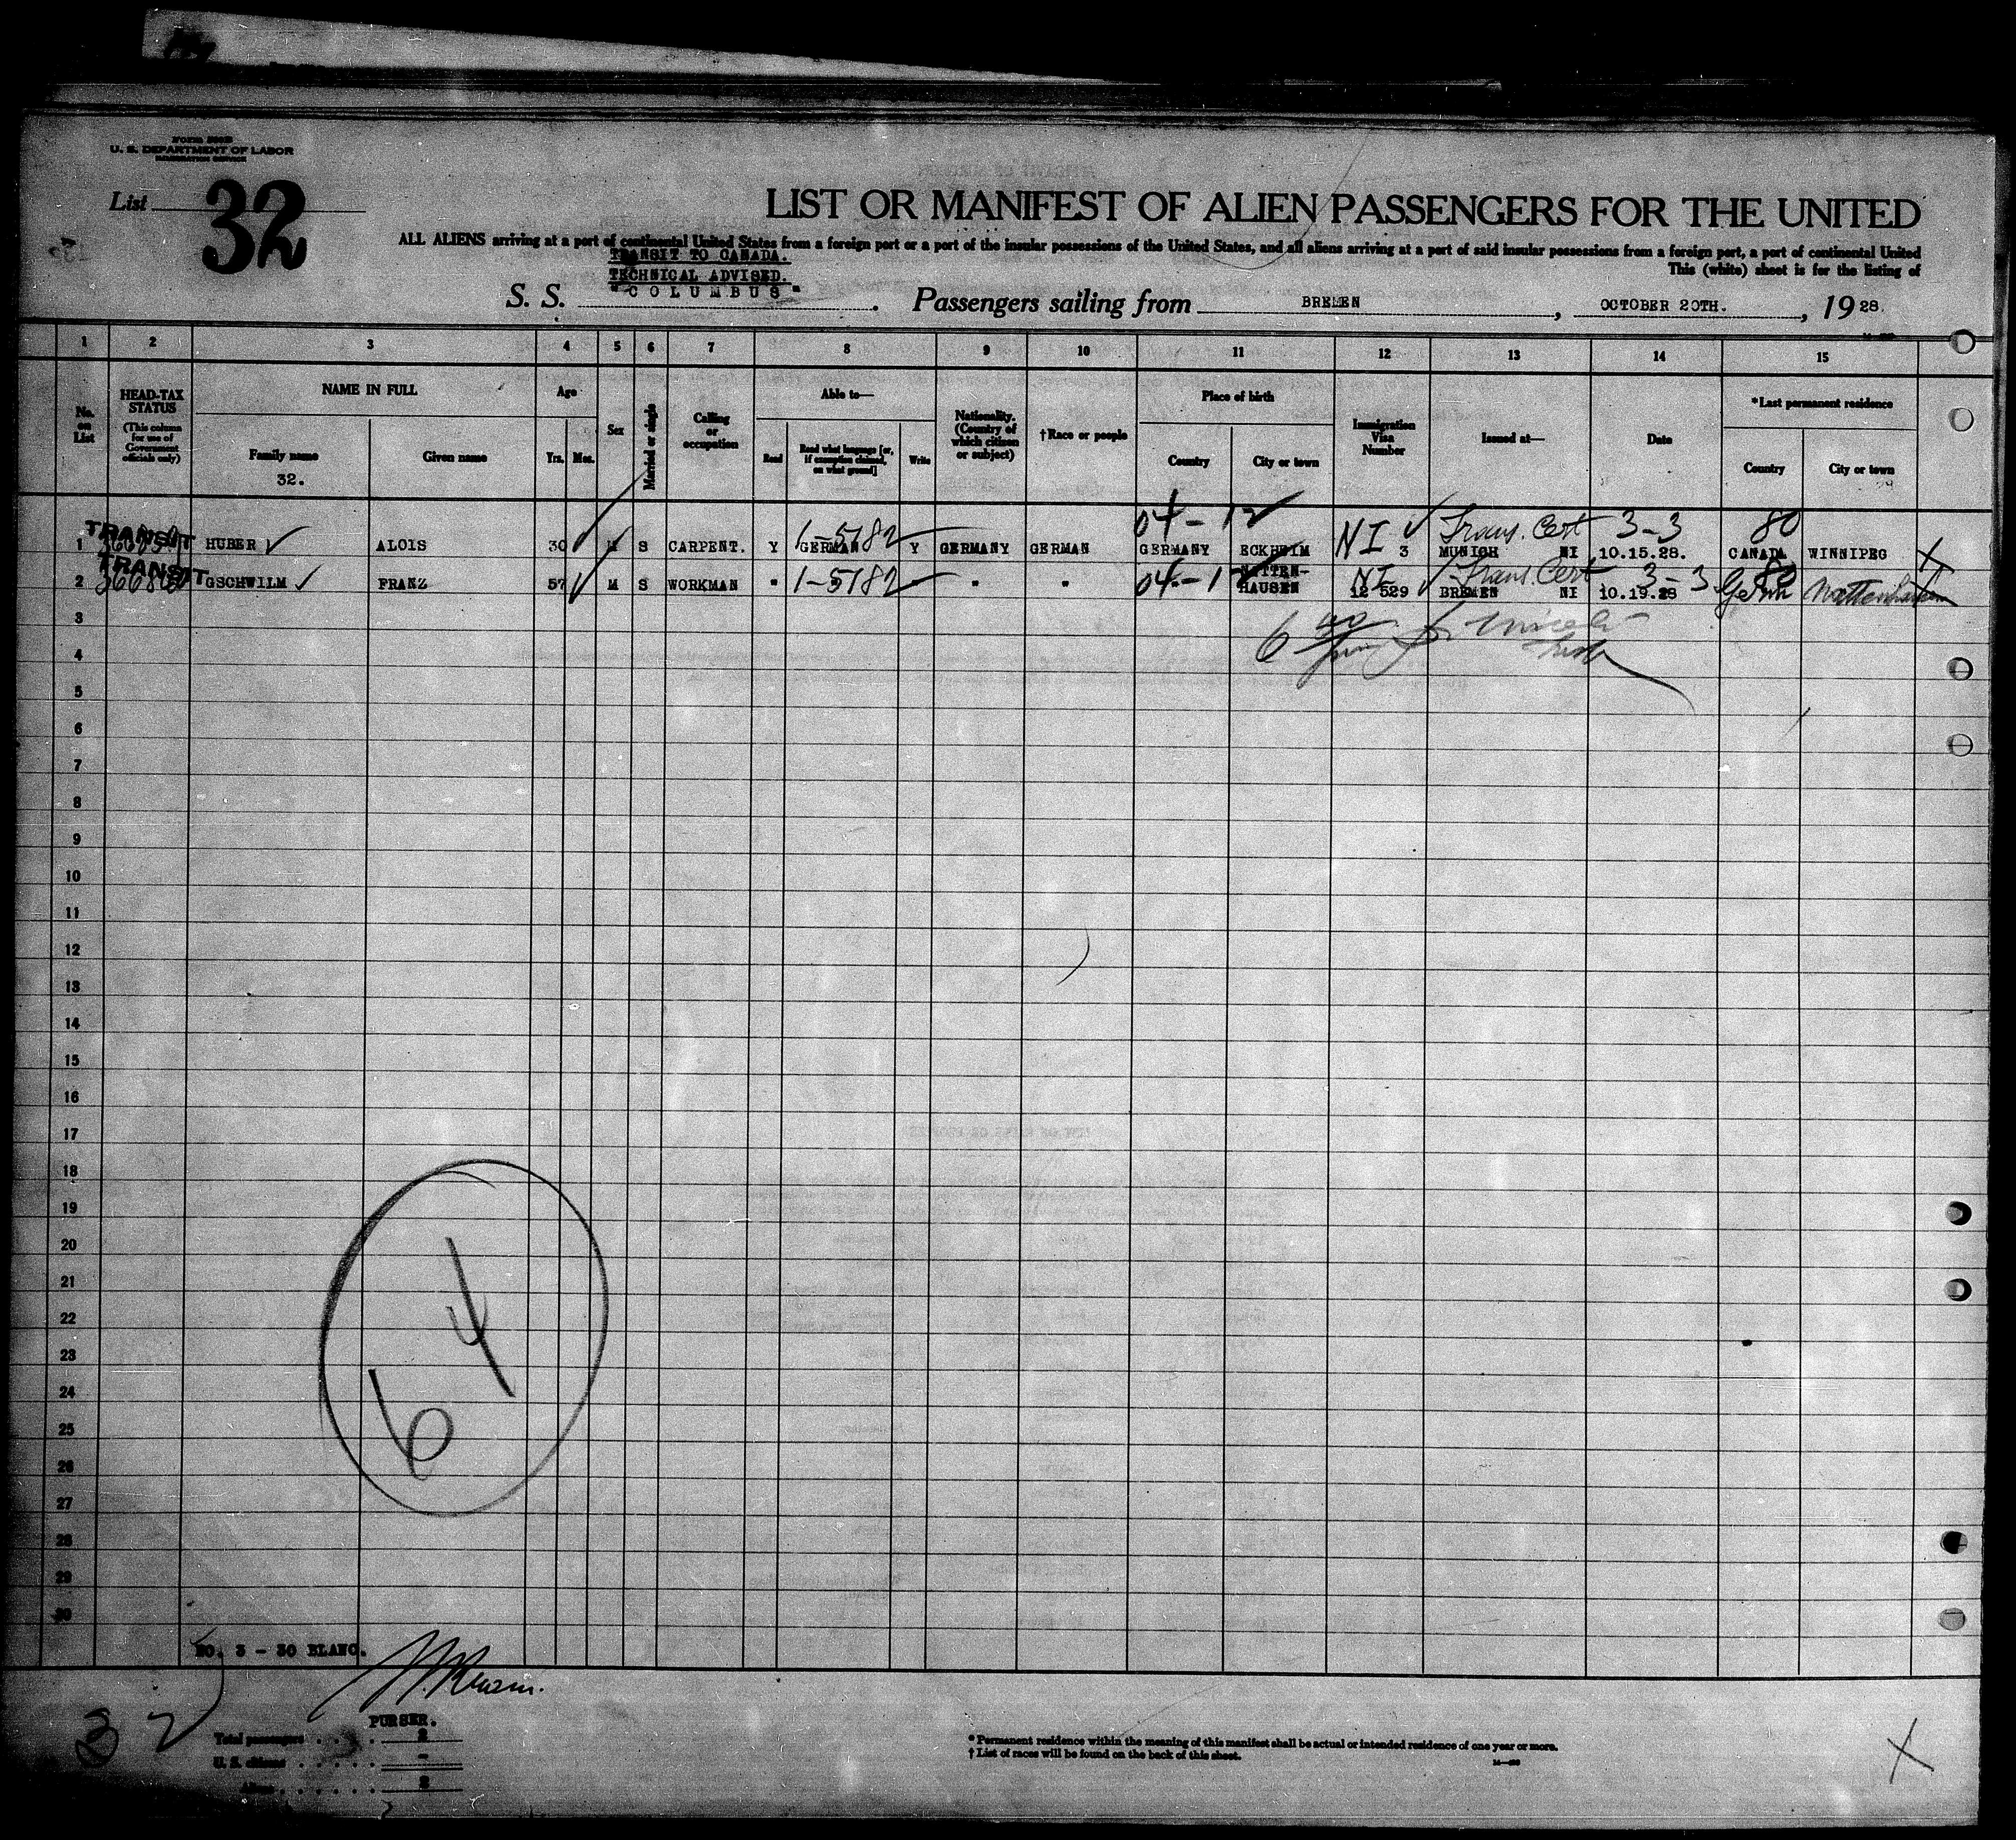 U. S. DEPARTMENT OF LABOR
List 32
LIST OR MANIFEST OF ALIEN PASSENGERS FOR THE UNITED
ALL ALIENS arriving at a port of continental United States from a foreign port or a port of the insular possessions of the United States, and all aliens arriving at a port of said insular possessions from a foreign port, a port of continental United
This (white) sheet is for the listing of
TRANSIT TO CANADA.
TECHNICAL ADVISED.
S. S. "COLUMBUS". Passengers sailing from BREMEN, OCTOBER 20TH., 1928.
1 2 3 4 5 6 7 8 9 10 11 12 13 14 15
No. on List
HEAD-TAX STATUS (This column for use of Government officials only)
NAME IN FULL
Family name
32.
Given name
Age
Yrs. Mos.
Sex
Married or single
Calling or occupation
Able to—
Read
Read what language [or, if exemption claimed, on what ground]
Write
Nationality. (Country of which citizen or subject)
†Race or people
Place of birth
Country
City or town
Immigration Visa Number
Issued at—
Date
*Last permanent residence
Country
City or town
04-12
1-5182
NI
Trans. Cert 3-3 80
1 TRANSIT HUBER ALOIS 30 M S CARPENT. Y GERMAN Y GERMANY GERMAN GERMANY ECKHEIM 3 MUNICH NI 10.15.28. CANADA WINNIPEG
2 TRANSIT GSCHWILM FRANZ 57 M S WORKMAN " 1-5182 " " " 04-12 HAUSEN NI 12 529 Trans. Cert BREMEN NI 3-3 10.19.28
3
4
5
6
7
8
9
10
11
12
13
14
15
16
17
18
19
20
21
22
23
24
25
26
27
28
29
30
64
NO. 3 - 30 BLANC.
PURSER.
32
Total passengers 2
U. S. citizens -
Aliens 2
* Permanent residence within the meaning of this manifest shall be actual or intended residence of one year or more.
† List of races will be found on the back of this sheet.
X